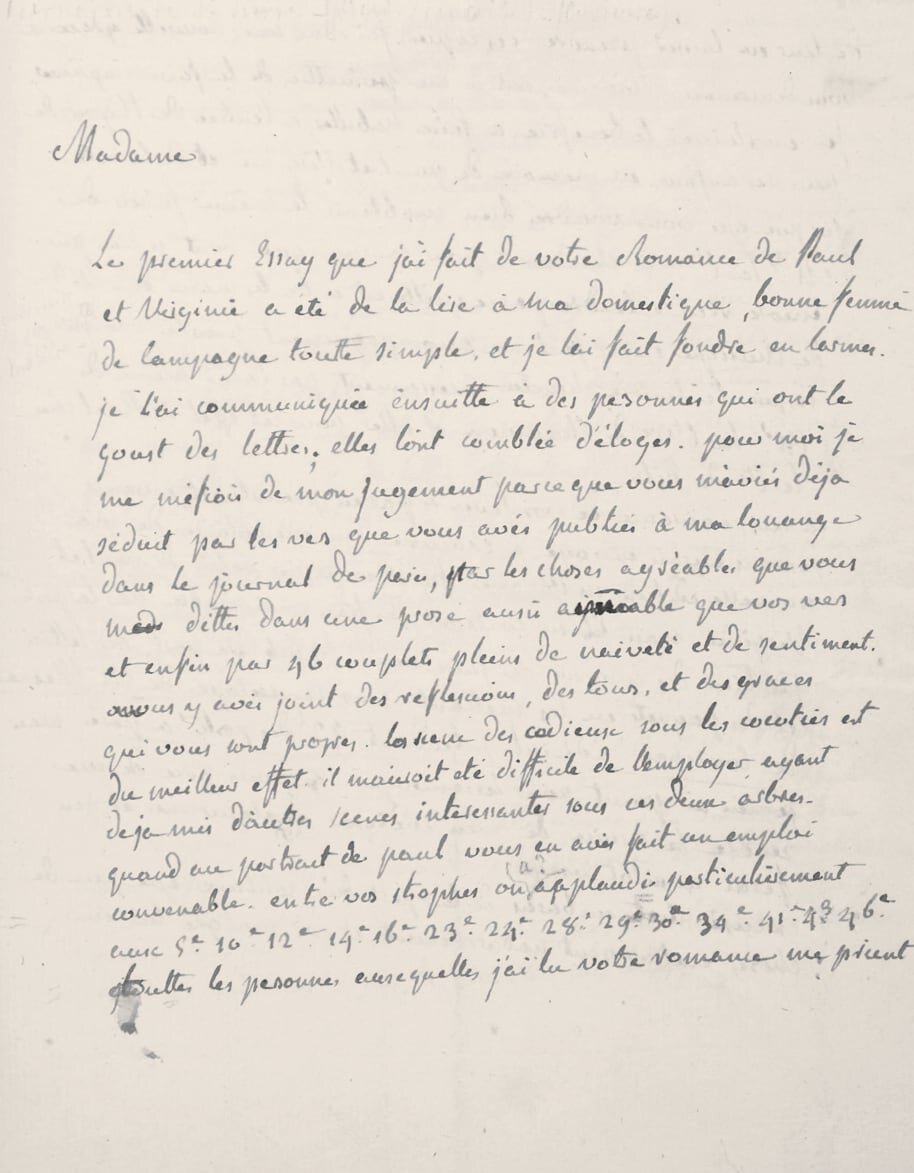 Madame
Le premier Essay que j'ai fait de votre Romance de Paul
et Virginie a eté de la lire à ma domestique, bonne femme
de campagne toutte simple, et je l'ai fait fondre en larmes.
je l'ai communiquée ensuitte à des personnes qui ont le
goust des lettres; elles l'ont comblée d'éloges. pour moi je
me méfiois de mon jugement parce que vous m'aviés déja
séduit par les vers que vous avés publiés à ma louange
dans le journal de paris, par les choses agréables que vous
dittes dans une prose aussi aimable que vos vers
et enfin par 46 couplets pleins de naiveté et de sentiment.
vous y avés joint des reflexions, des tours, et des graces
qui vous sont propres. la scene des adieux sous les cocotiers est
du meilleur effet. il m'auroit eté difficile de l'employer ayant
deja mis d'autres scenes interessantes sous ces deux arbres.
quand au portrait de paul vous en avés fait un emploi
convenable. entre vos strophes on a applaudi particulièrement
aux 5e 10e 12e 14e 16e 23e 24e 28e 29e 30e 34e 41e 43 46e
touttes les personnes auxquelles j'ai lu votre romance me prient